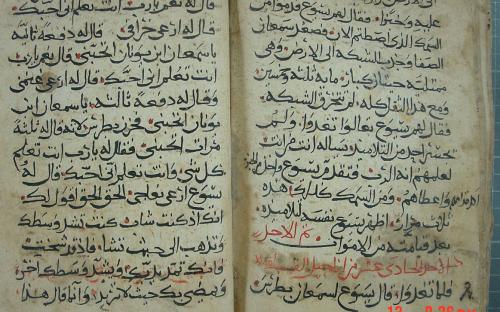 عليه وخبزا. فقال لهم يسوع قدموا من
السمك الذي اصطدتم الان. فصعد سمعان
الصفا وجر الشبكة الى الارض وهي
ممتلية حيتان كبار. ماية وثلثة وخمسين
ومع هذا الثقل كله لم تتخرق الشبكة
فقال لهم يسوع تعالوا تغدوا. ولم
احد من التلاميذ يساله انت من انت
لعلمهم انه الرب. فتقدم يسوع واخذ الخبز
واعطاهم. ومن السمك كذلك. هذه
ثالث مرة اظهر يسوع نفسه لتلاميذه
بعد قيامته من الاموات. تم الاحد
فلما تغدوا. قال يسوع لسمعان بطرس
قال له نعم يارب انت تعلم اني احبك
قال له ارعى خرافي. قال له دفعة ثانية
ياسمعان ابن يونان اتحبني. قال نعم يارب
انت تعلم اني احبك. قال له ارعى غنمي
وقال له دفعة ثالثة. ياسمعان ابن
يونان اتحبني. فحزن بطرس لانه قال له ثلثة
مرات اتحبني. فقال له يارب انت تعلم
كل شي وانت تعلم اني احبك. قال له
يسوع ارعى نعاجي. الحق الحق اقول لك
انك اذ كنت شاب كنت تشد وسطك
وتذهب الى حيث تشا. فاذا شخت
يديك. ويشد وسطك اخر.
ويمضي بك حيث لا تريد. وانما قال هذا